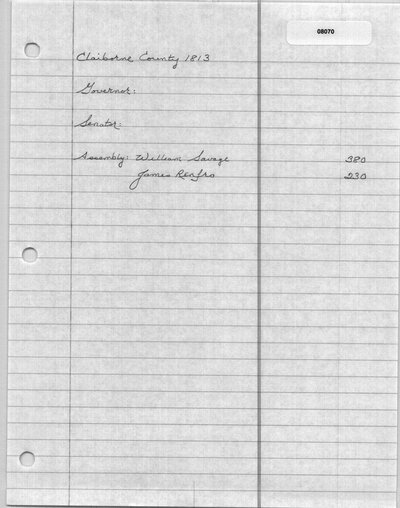 08070
Claiborne County 1813
Governor:
Senator:
Assembly: William Savage 380
James Renfro 230